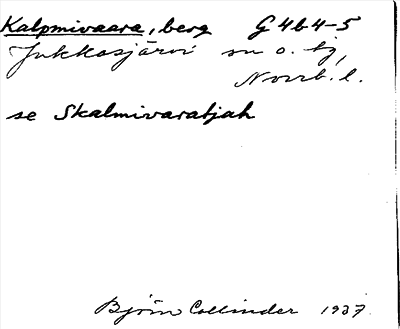 Kalpmivaara, berg G4b4-5
Jukkasjärvi sn o. tg,
Norrb. l.
se Skalmivaratjah
Björn Collinder 1937.